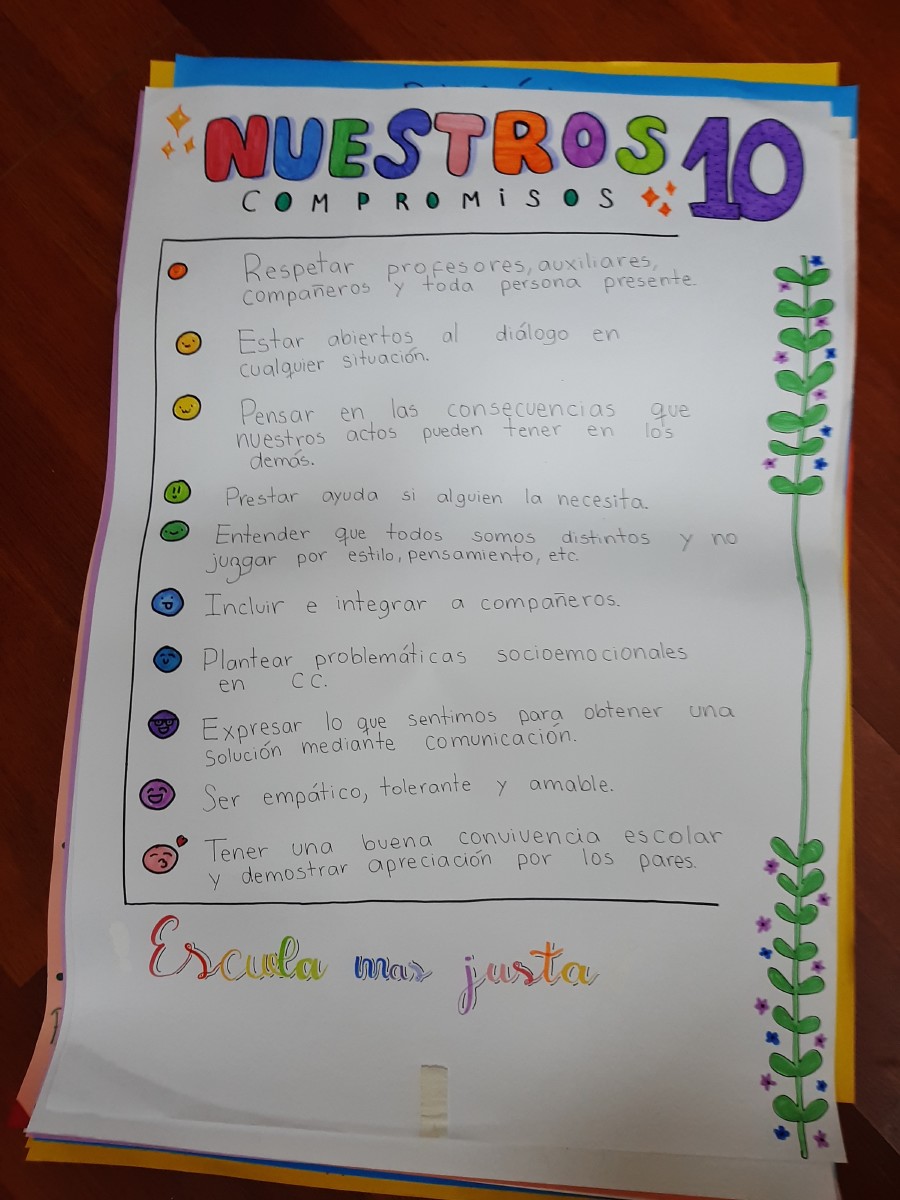 NUESTROS 10
COMPROMISOS
Respetar profesores, auxiliares,
compañeros y toda persona presente.
Estar abiertos al diálogo en
cualquier situación.
Pensar en las consecuencias que
nuestros actos pueden tener en los
demás.
Prestar ayuda si alguien la necesita.
Entender que todos somos distintos y no
juzgar por estilo, pensamiento, etc.
Incluir e integrar a compañeros.
Plantear problemáticas socioemocionales
en CC.
Expresar lo que sentimos para obtener una
solución mediante comunicación.
Ser empático, tolerante y amable.
Tener una buena convivencia escolar
y demostrar apreciación por los pares.
Escula mas justa